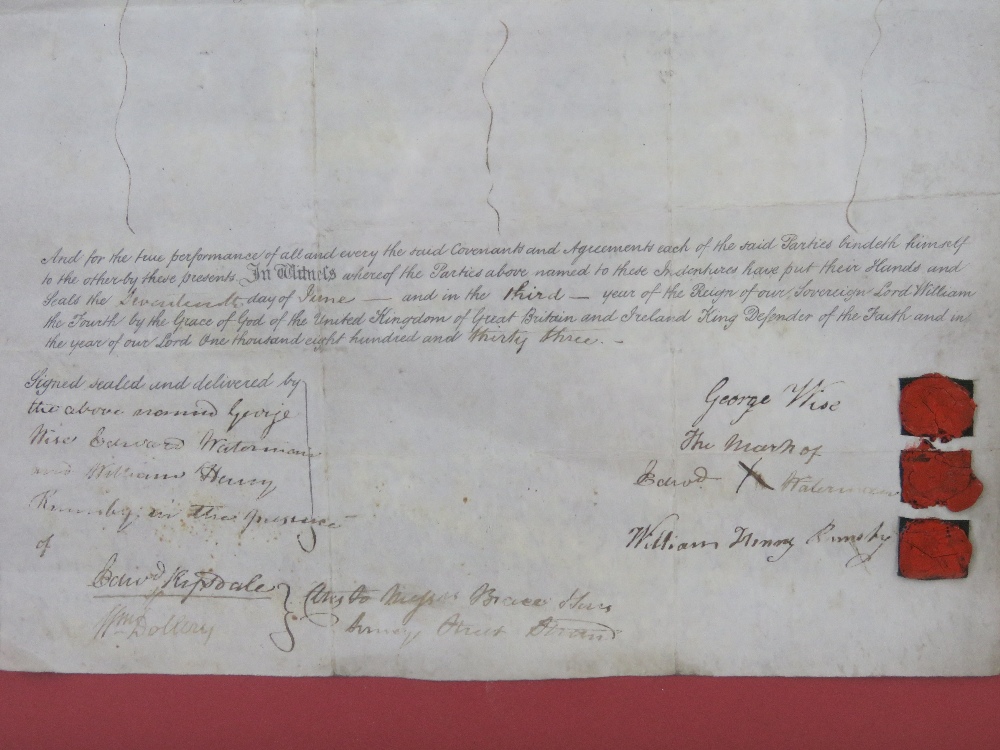 And for the true performance of all and every the said Covenants and Agreements each of the said Parties bindeth himself
to the other by these presents In Witness whereof the Parties above named to these Indentures have put their Hands and
Seals the day of June — and in the third — year of the Reign of our Sovereign Lord William
the Fourth by the Grace of God of the United Kingdom of Great Britain and Ireland King Defender of the Faith and in
the year of our Lord One thousand eight hundred and thirty three. —
Signed sealed and delivered by
the above named George
Wise Edward Waterman
and William Henry
in the presence
of
George Wise
The Mark of
Edwd X Waterman
William Henry
Edwd
Wm Dollery
Clks to Messrs
Surrey Street Strand